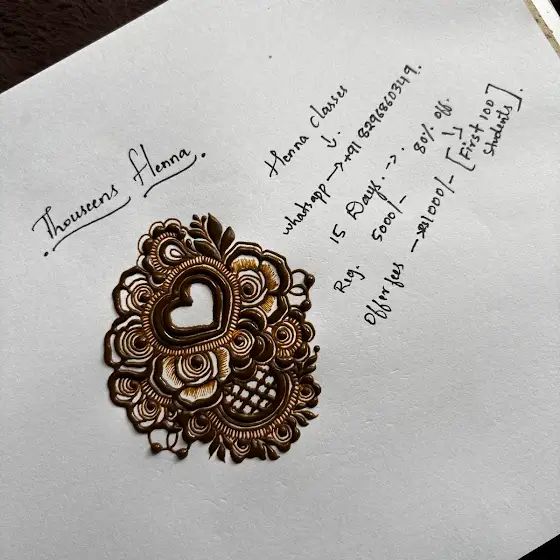 Thouseens Henna.
Henna classes
↓.
whatsapp → +91 8296860349.
15 Days. →.
Reg. 5000/- 80% off.
Offer fees → 1000/- [First 100 students].